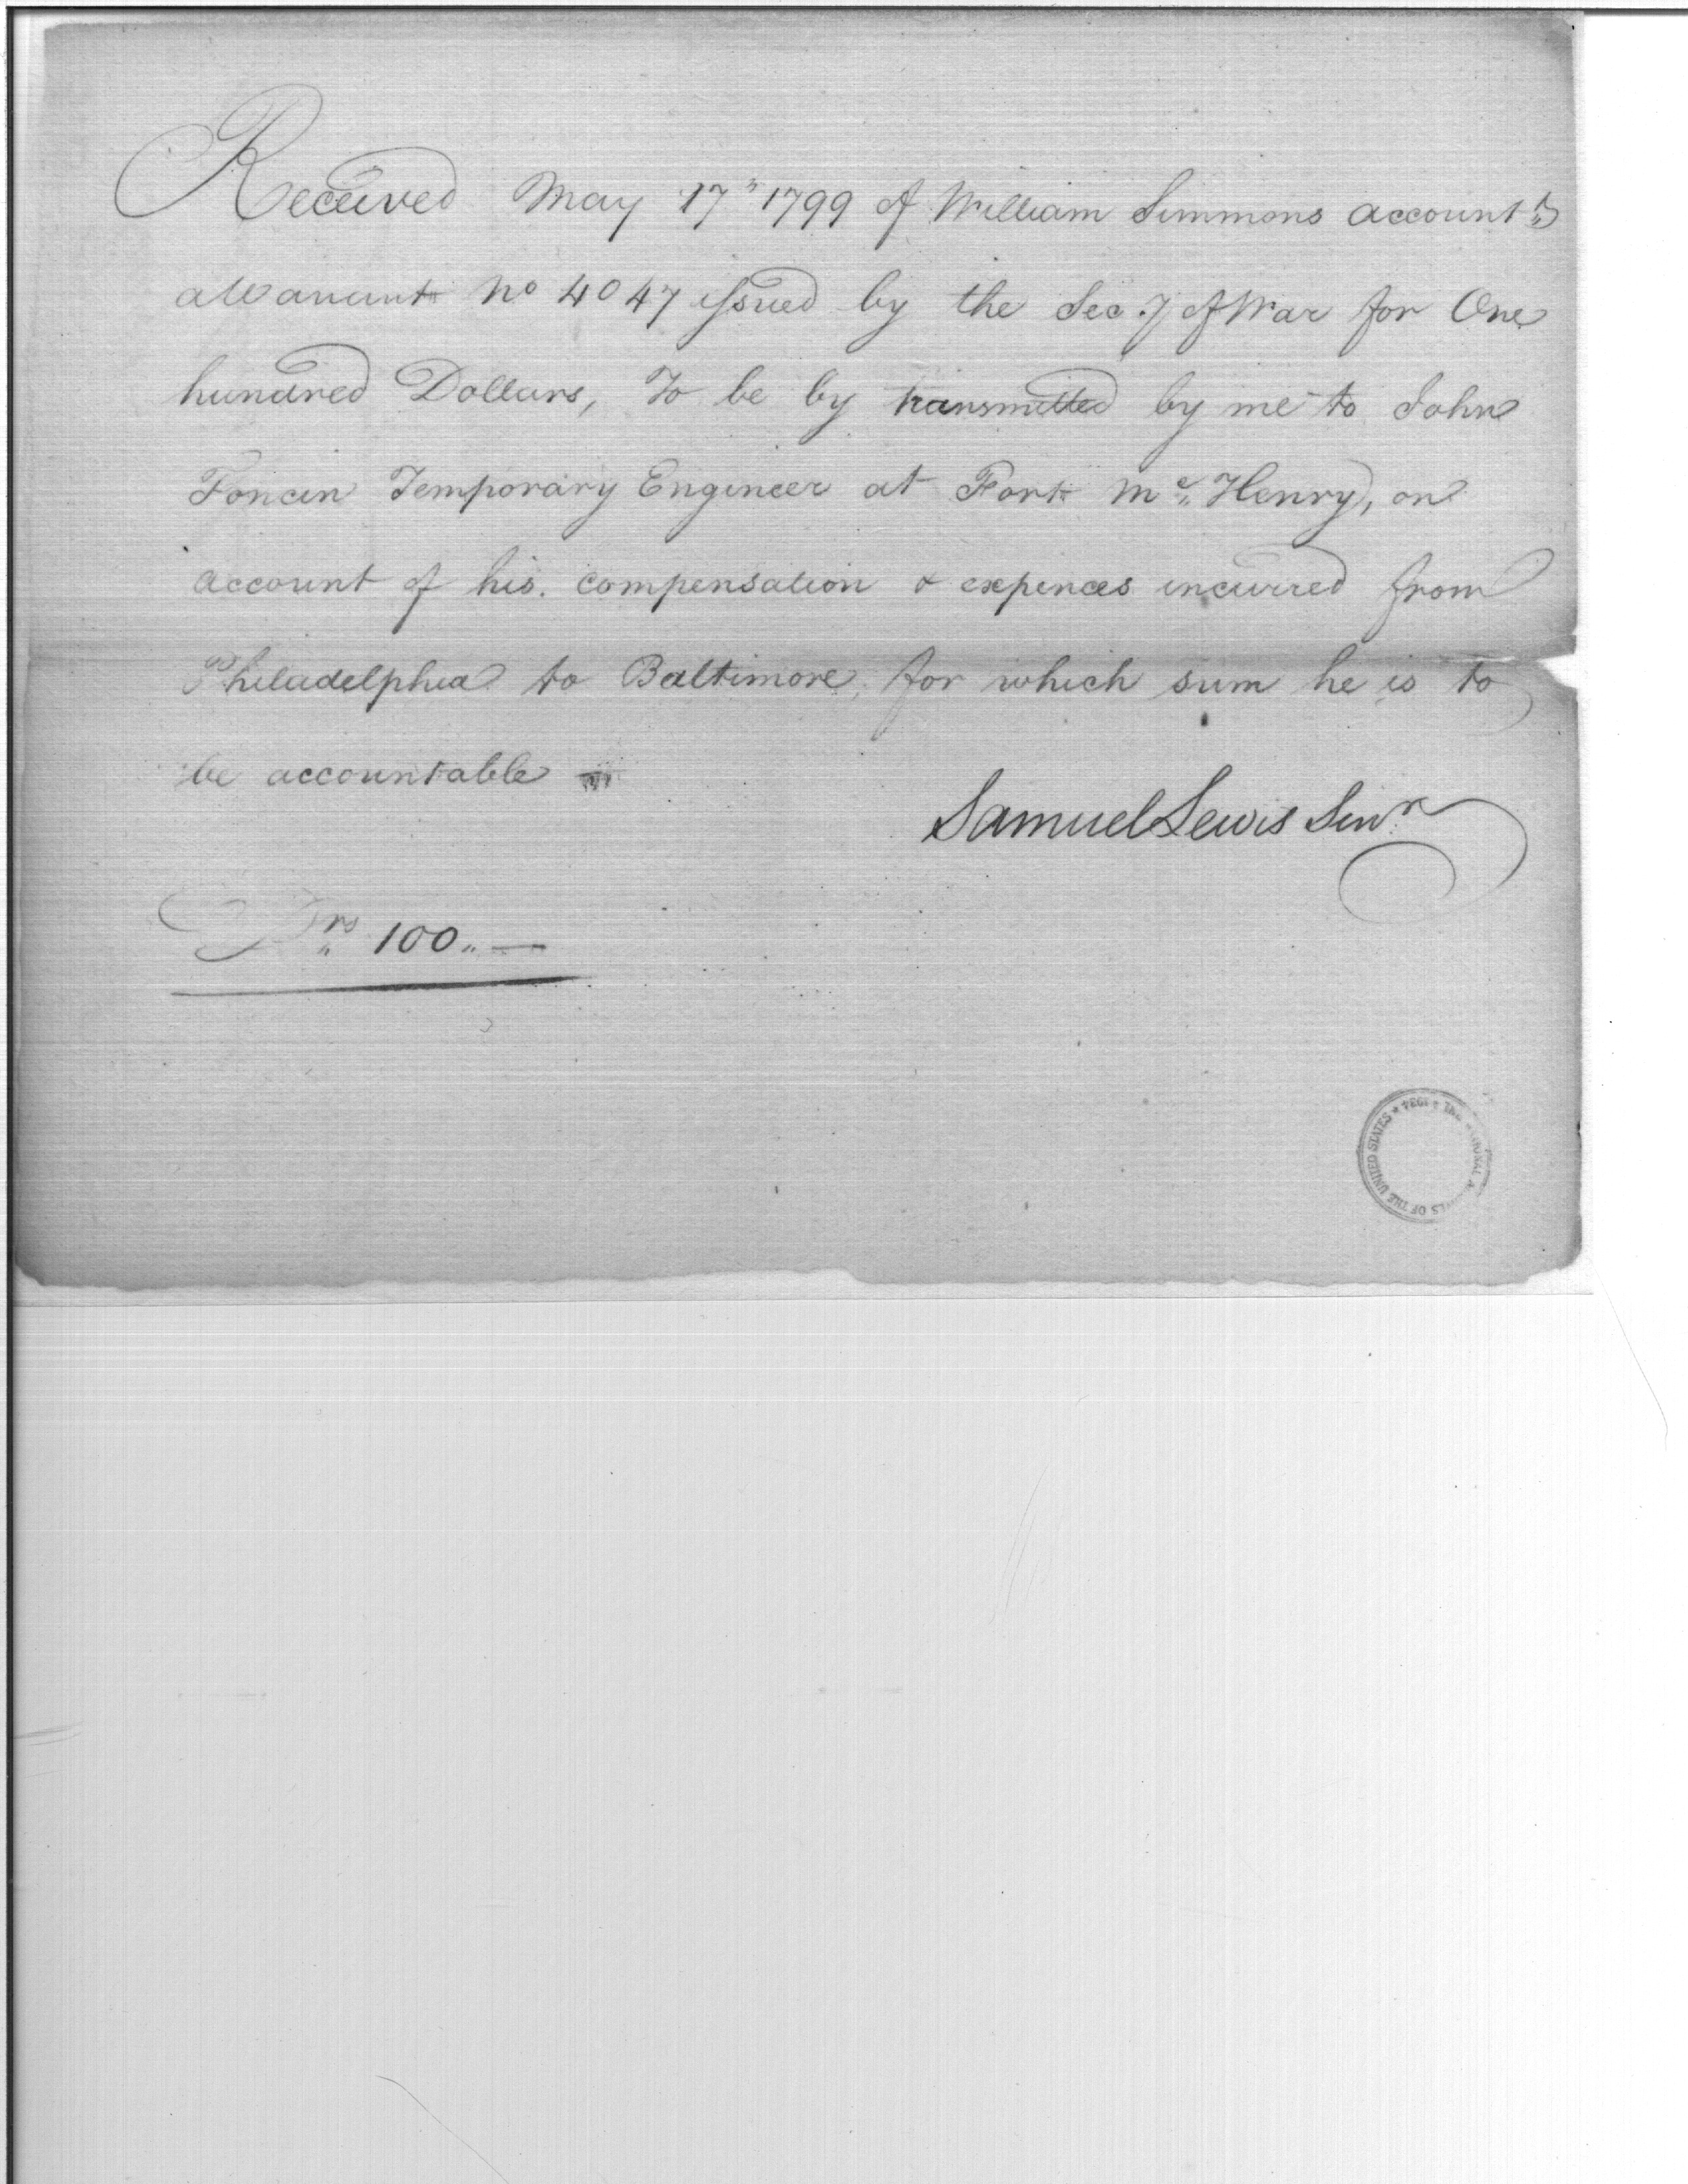 Received May 17th 1799 of William Simmons account.t
a Warrant No 4047 issued by the Sec.y of War for One
hundred Dollars, To be by transmitted by me to John
Foncin Temporary Engineer at Fort Mc. Henry, on
account of his. compensation & expences incurred from
Philadelphia to Baltimore, for which sum he is to
be accountable
Samuel Lewis Senr
Drs 100..—
THE NATIONAL ARCHIVES OF THE UNITED STATES ★ 1934 ★